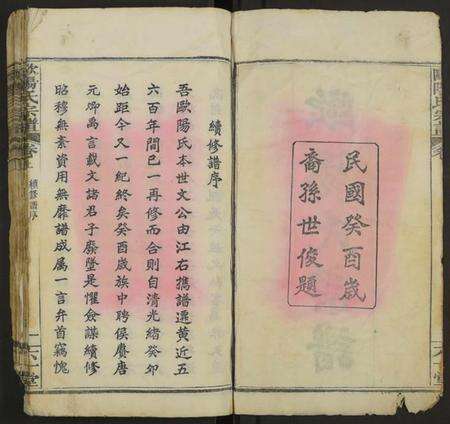 民國癸酉歲
裔孫世俊題
續修譜序
吾歐陽氏本世文公由江右攜譜遷黃近五
六百年間已一再修而合則自清光緒癸卯
始距今又一紀終矣癸酉歲族中聘侯賡唐
元卿禹言載文諸君子廢墜是懼僉謀續修
昭穆無紊資用無靡譜成属一言弁首竊愧
歐陽氏宗譜
續修譜序
六一堂